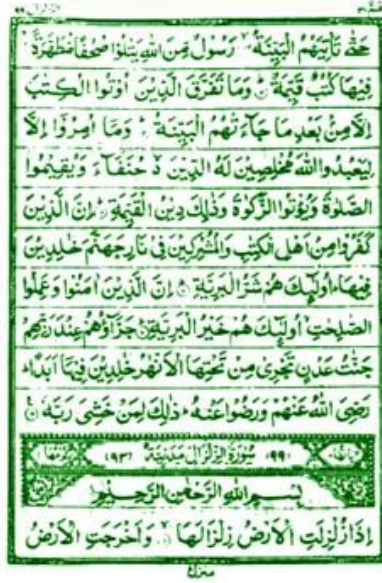 حَتّٰى تَاْتِيَهُمُ الْبَيِّنَةُ ۙ رَسُوْلٌ مِّنَ اللّٰهِ يَتْلُوْا صُحُفًا مُّطَهَّرَةً ۙ
فِيْهَا كُتُبٌ قَيِّمَةٌ ؕ وَمَا تَفَرَّقَ الَّذِيْنَ اُوْتُوا الْكِتٰبَ
اِلَّا مِنْۢ بَعْدِ مَا جَآءَتْهُمُ الْبَيِّنَةُ ؕ وَمَاۤ اُمِرُوْۤا اِلَّا
لِيَعْبُدُوا اللّٰهَ مُخْلِصِيْنَ لَهُ الدِّيْنَ ۙ حُنَفَآءَ وَيُقِيْمُوا
الصَّلٰوةَ وَيُؤْتُوا الزَّكٰوةَ وَذٰلِكَ دِيْنُ الْقَيِّمَةِ ؕ اِنَّ الَّذِيْنَ
كَفَرُوْا مِنْ اَهْلِ الْكِتٰبِ وَالْمُشْرِكِيْنَ فِيْ نَارِ جَهَنَّمَ خٰلِدِيْنَ
فِيْهَا ؕ اُولٰٓئِكَ هُمْ شَرُّ الْبَرِيَّةِ ؕ اِنَّ الَّذِيْنَ اٰمَنُوْا وَعَمِلُوا
الصّٰلِحٰتِ اُولٰٓئِكَ هُمْ خَيْرُ الْبَرِيَّةِ ؕ جَزَآؤُهُمْ عِنْدَ رَبِّهِمْ
جَنّٰتُ عَدْنٍ تَجْرِيْ مِنْ تَحْتِهَا الْاَنْهٰرُ خٰلِدِيْنَ فِيْهَاۤ اَبَدًا ؕ
رَضِيَ اللّٰهُ عَنْهُمْ وَرَضُوْا عَنْهُ ؕ ذٰلِكَ لِمَنْ خَشِيَ رَبَّهٗ
(٩٩) سُوْرَةُ الزِّلْزَالِ مَدَنِيَّةٌ (٩٣)
بِسْمِ اللّٰهِ الرَّحْمٰنِ الرَّحِيْمِ
اِذَا زُلْزِلَتِ الْاَرْضُ زِلْزَالَهَا ۙ وَاَخْرَجَتِ الْاَرْضُ